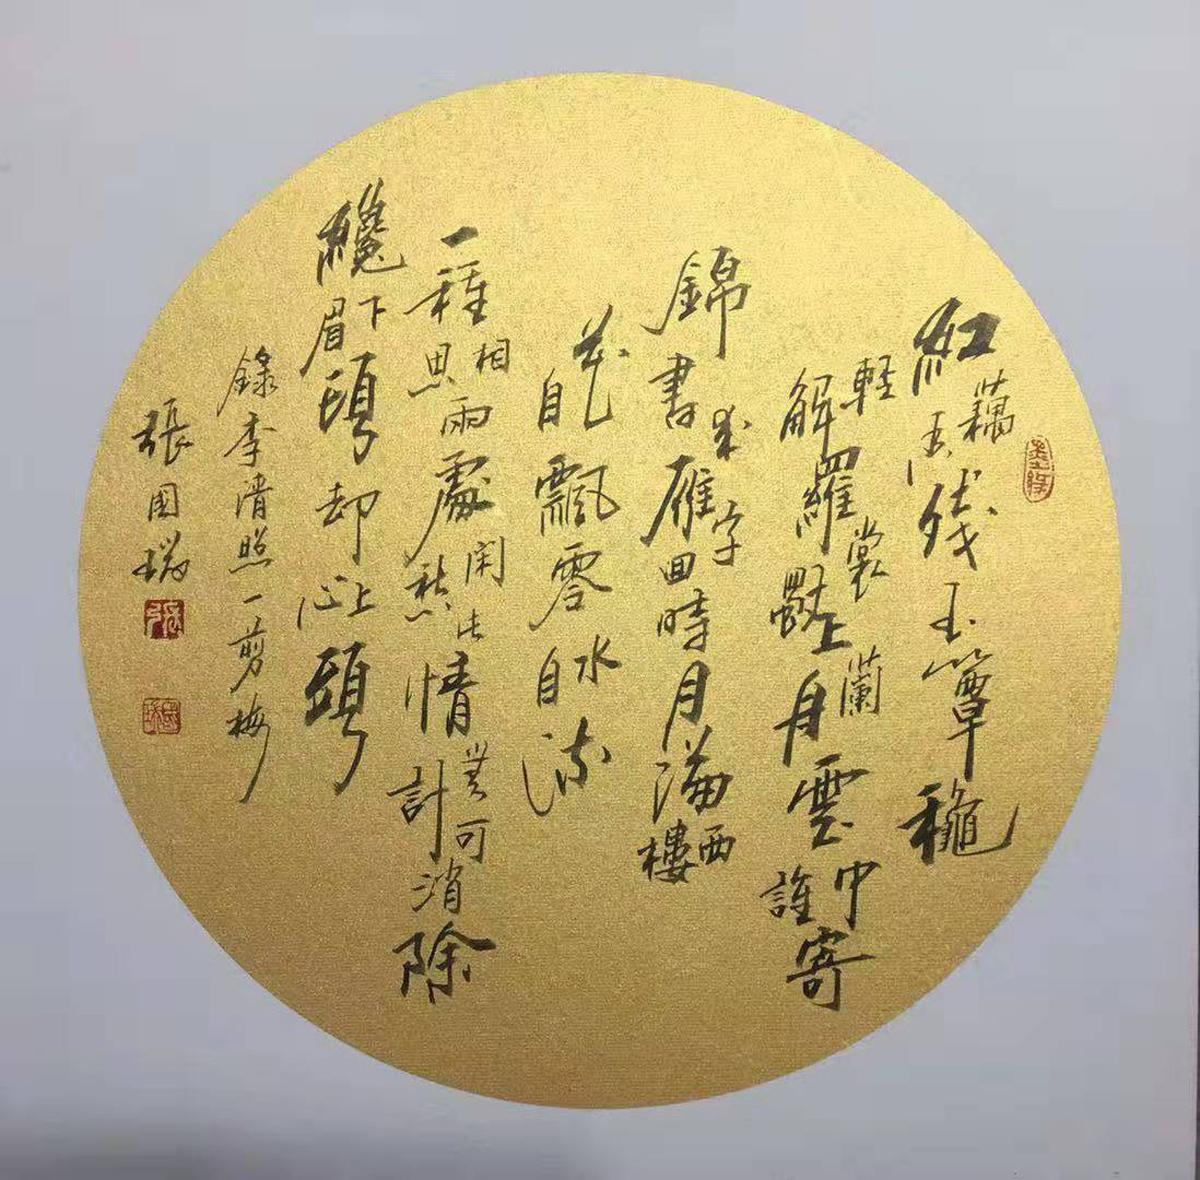 紅藕香残玉簟穐
輕解羅裳獨上蘭舟雲中誰寄
錦書来雁字回時月滿西樓
花自飄零水自流
一種相思兩處閑愁此情無可計消除
纔下眉頭却上心頭
錄李清照一剪梅
張国瑞